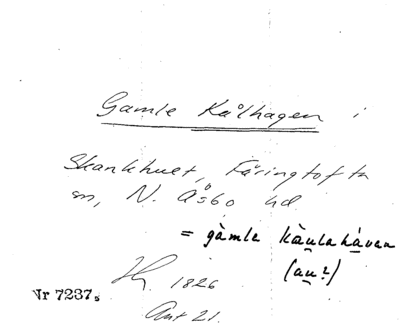 Gamle Kålhagen i
Skankhult, Färingtofta
sn, N. Åsbo hd
= gàmle kàulahàvan
(au?)
1826
Nr 7237.
Akt 21.